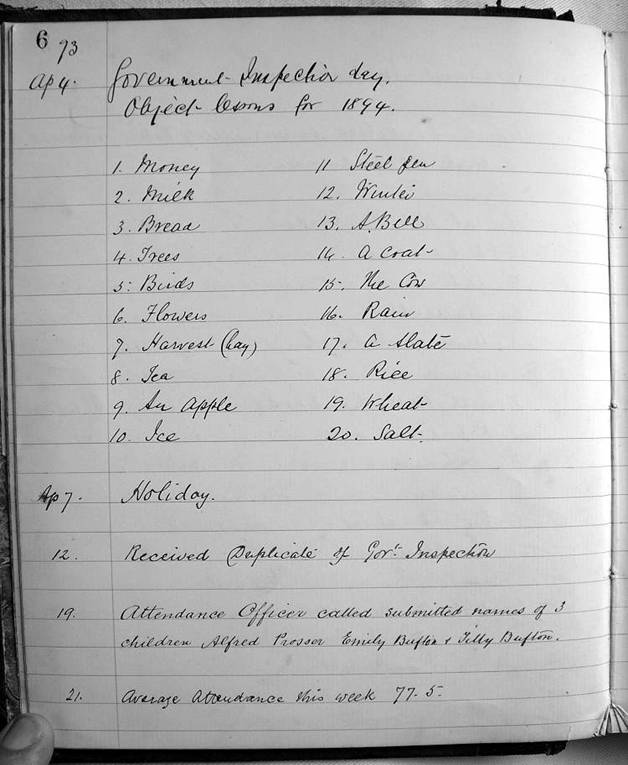 6 73
Ap 4. Government Inspection day.
Object lessons for 1894.
1. Money 11 Steel pen
2. Milk 12. Winter
3. Bread 13. A Bell
4. Trees 14. A Coat
5. Birds 15. The Cow
6. Flowers 16. Rain
7. Harvest (hay) 17. A slate
8. Tea 18. Rice
9. An Apple 19. Wheat
10. Ice 20. Salt.
Ap 7. Holiday.
12. Received Duplicate of Govt. Inspection
19. Attendance Officer called submitted names of 3
children Alfred Prosser Emily Bufton & Tilly Bufton.
21. Average Attendance this week 77.5.